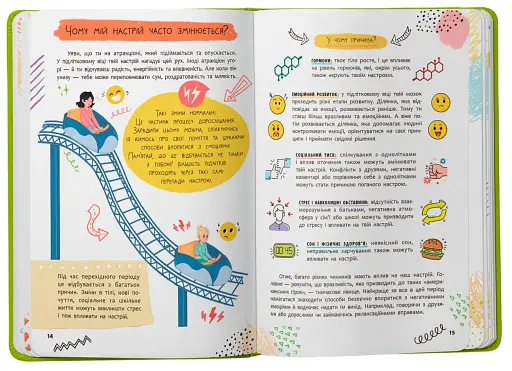 Чому мій настрій часто змінюється?
Уяви, що ти на атракціоні, який підіймається та опускається.
У підлітковому віці твій настрій нагадує цей рух. Іноді атракціон угорі — й ти відчуваєш радість, енергійність та впевненість. Але коли він унизу — тебе може переповнювати сум, роздратованість та млявість.
Такі зміни нормальні.
Це частина процесу дорослішання.
Зарадити цьому можна, спілкуючись
із кимось про свої почуття та шукаючи
способи впоратися з емоціями.
Пам'ятай, що це відбувається не тільки
з тобою! Більшість підлітків
проходять через такі самі
перепади настрою.
Під час перехідного періоду
це відбувається з багатьох
причин. Зміни в тілі, нові по-
чуття, соціальне та шкільне
життя можуть викликати стрес
і теж впливати на настрій.
14
У чому причина?
Гормони: твоє тіло росте, і це впливає
на рівень гормонів, які, окрім усього,
також керують твоїм настроєм.
Емоційний розвиток: у підлітковому віці твій мозок
проходить різні етапи розвитку. Ділянка, яка відпо-
відає за емоції, розвивається раніше. Тому ти
стаєш більш вразливим та емоційним. А вже потім
розвивається ділянка, яка допомагає людині
контролювати емоції, орієнтуватися на свої прин-
ципи і приймати свідомі рішення.
Соціальний тиск: спілкування з однолітками
і вплив оточення також можуть змінювати
твій настрій. Конфлікти з друзями, негативні
коментарі або порівняння себе з однолітками
можуть стати причиною поганого настрою.
Стрес і навколишні обставини: відсутність взаєморозуміння з батьками, негативна атмосфера у сім'ї або школі можуть призводити
до стресу і впливати на настрій.
00:45
Сон і фізичне здоров'я: неякісний сон,
неправильне харчування також можуть
впливати на настрій.
Отже, багато різних чинників мають вплив на наш настрій. Го-
ловне — розуміти, що вразливість, яка призводить до таких «амери-
канських гірок», — тимчасове явище. Найкраще за все в цей період
намагатися знаходити способи безпечно впоратися з негативними
емоціями й водночас надати їм вихід. Наприклад, говорячи з друзя-
ми або дорослими чи займаючись релаксаційними вправами.
15